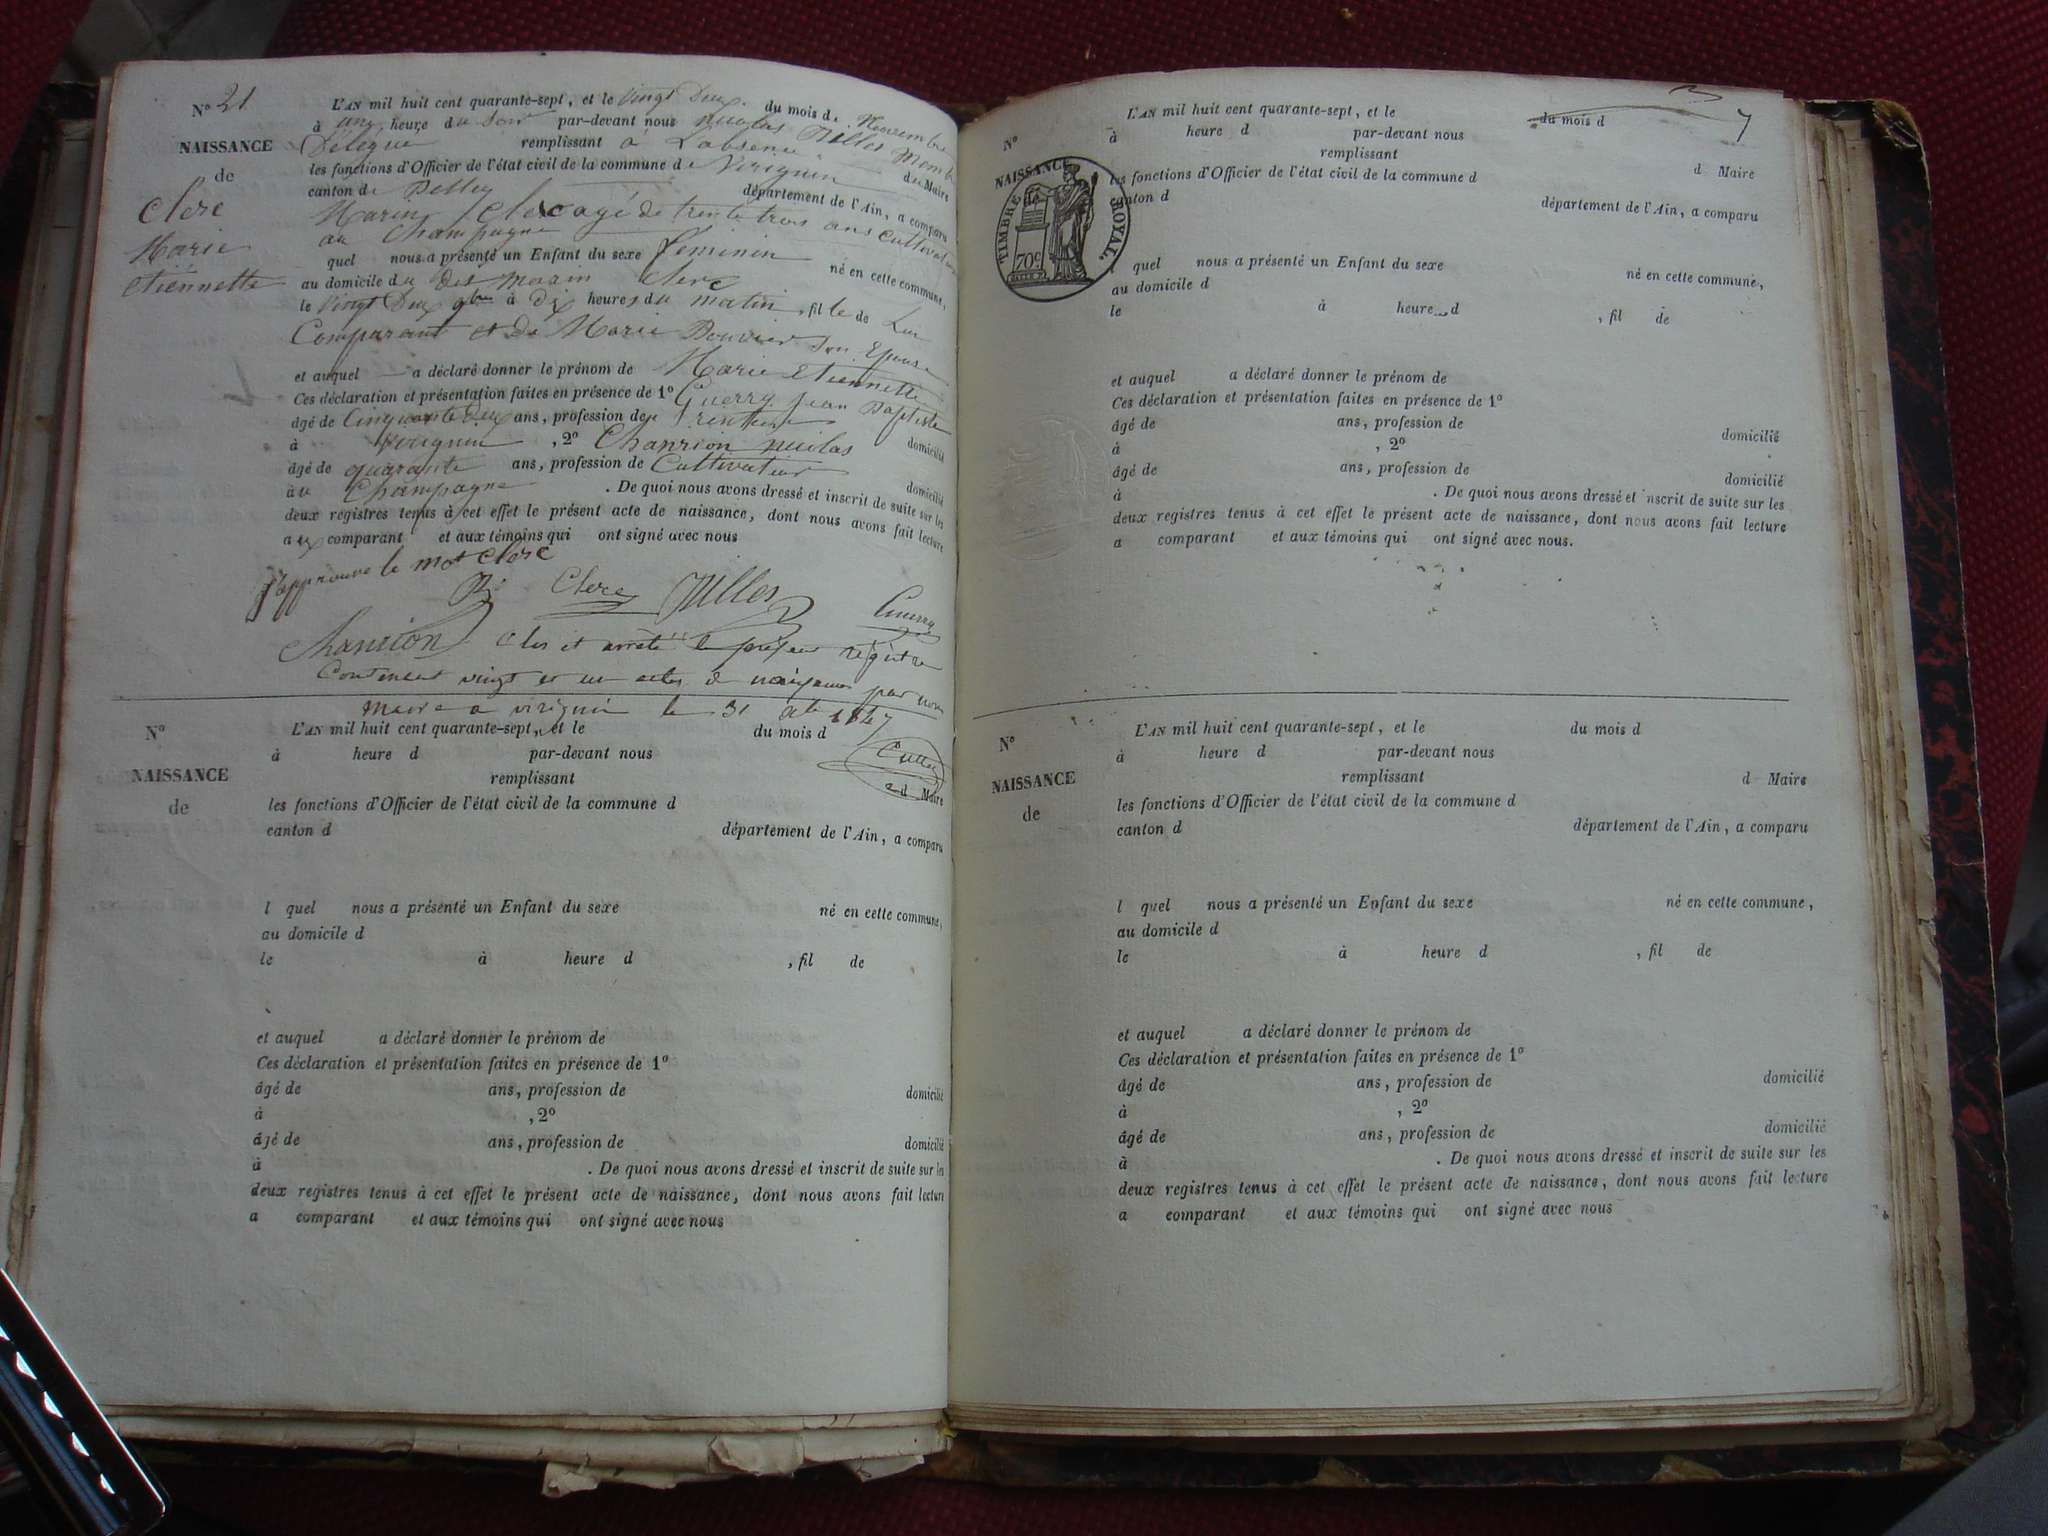 N° 21
NAISSANCE
de
Clerc
Marie
Etiennette
L'AN mil huit cent quarante-sept, et le vingt Deux du mois de Novembre
à onze heure du soir par-devant nous Nicolas Milles Memb
Délégué remplissant à L'absence du Maire
les fonctions d'Officier de l'état civil de la commune de Virignin
canton de Belley département de l'Ain, a comparu
Marin Clerc agé de trente trois ans Cultivateur
au Champagne
quel nous a présenté un Enfant du sexe féminin né en cette commune,
au domicile du dit Marin Clerc
le vingt Deux 9bre à Dix heures du matin, fille de Lui
Comparant et de Marie Bouvier Son Epouse
et auquel a déclaré donner le prénom de Marie Etiennette
Ces déclaration et présentation faites en présence de 1° Guerry Jean Baptiste
âgé de Cinquante Deux ans, profession de rentier domicilié
à Virignin, 2° Chanrion Nicolas
âgé de quarante ans, profession de Cultivateur domicilié
au Champagne. De quoi nous avons dressé et inscrit de suite sur les
deux registres tenus à cet effet le présent acte de naissance, dont nous avons fait lecture
aux comparant et aux témoins qui ont signé avec nous
J'approuve le mot clerc
Clerc Milles Guerry
Chanrion
Clos et arrêté le présent régistre
Contenant vingt et un actes de naissances par nous
Maire a virignin le 31 1847
N°
NAISSANCE
de
L'AN mil huit cent quarante-sept, et le du mois d
à heure d par-devant nous
remplissant d Maire
les fonctions d'Officier de l'état civil de la commune d
canton d département de l'Ain, a comparu
l quel nous a présenté un Enfant du sexe né en cette commune,
au domicile d
le à heure d , fil de
et auquel a déclaré donner le prénom de
Ces déclaration et présentation faites en présence de 1°
âgé de ans, profession de domicilié
à , 2°
âgé de ans, profession de domicilié
à . De quoi nous avons dressé et inscrit de suite sur les
deux registres tenus à cet effet le présent acte de naissance, dont nous avons fait lecture
a comparant et aux témoins qui ont signé avec nous
7
N°
NAISSANCE
TIMBRE ROYAL.
70c
L'AN mil huit cent quarante-sept, et le du mois d
à heure d par-devant nous
remplissant d Maire
les fonctions d'Officier de l'état civil de la commune d
canton d département de l'Ain, a comparu
quel nous a présenté un Enfant du sexe né en cette commune,
au domicile d
le à heure d , fil de
et auquel a déclaré donner le prénom de
Ces déclaration et présentation faites en présence de 1°
âgé de ans, profession de domicilié
à , 2°
âgé de ans, profession de domicilié
à . De quoi nous avons dressé et inscrit de suite sur les
deux registres tenus à cet effet le présent acte de naissance, dont nous avons fait lecture
a comparant et aux témoins qui ont signé avec nous.
N°
NAISSANCE
de
L'AN mil huit cent quarante-sept, et le du mois d
à heure d par-devant nous
remplissant d Maire
les fonctions d'Officier de l'état civil de la commune d
canton d département de l'Ain, a comparu
l quel nous a présenté un Enfant du sexe né en cette commune,
au domicile d
le à heure d , fil de
et auquel a déclaré donner le prénom de
Ces déclaration et présentation faites en présence de 1°
âgé de ans, profession de domicilié
à , 2°
âgé de ans, profession de domicilié
à . De quoi nous avons dressé et inscrit de suite sur les
deux registres tenus à cet effet le présent acte de naissance, dont nous avons fait lecture
a comparant et aux témoins qui ont signé avec nous